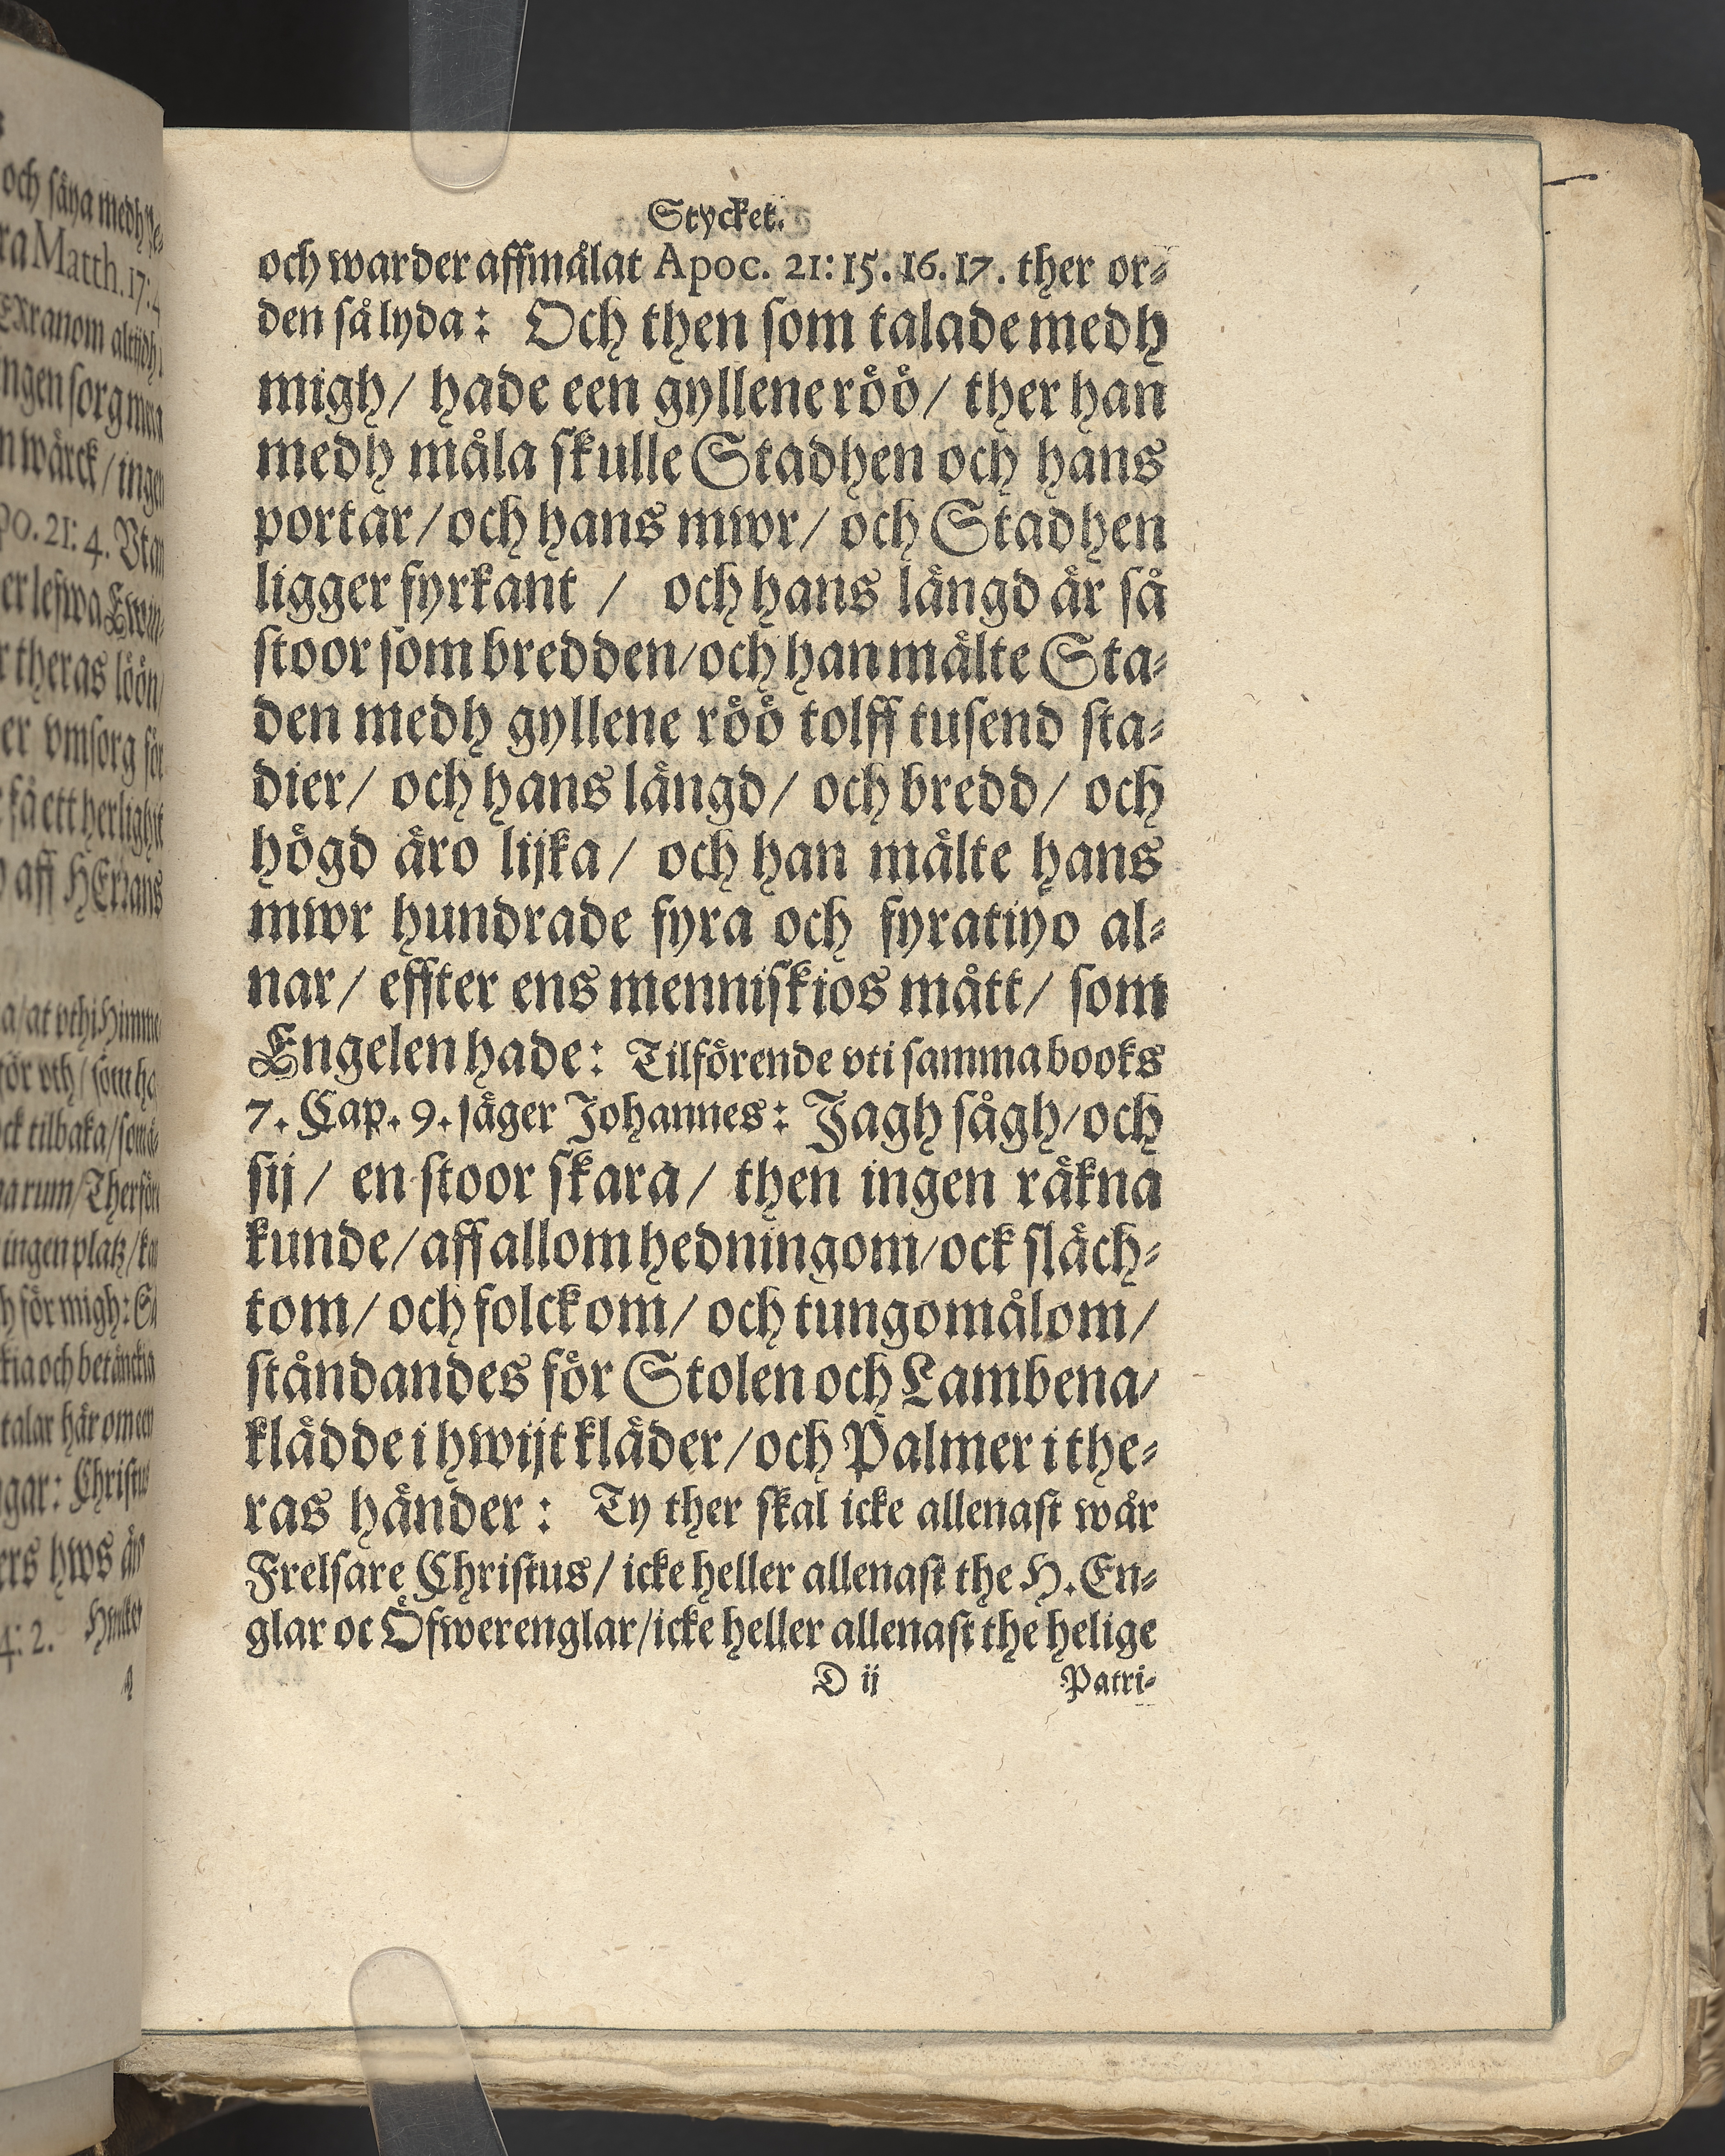 och såna medh
ra Matth. 17: 4
ngen sorg mera
n wärck / ingen
po. 21: 4. Vtan
er lefwa Ewin-
r theras löön
er vmsorg för
få ett herlighit
aff HErrans
a / at vthi Himme
för vth / som
ck tilbaka / som
rum / Therföre
ingen platz /
h för migh: Så
kia och betänckia
talar här om een
gar: Christus
ers hws
4: 2.
Stycket.
och warder affmålat Apoc. 21: 15. 16. 17. ther or-
den så lyda: Och then som talade medh
migh / hade een gyllene röö / ther han
medh måla skulle Stadhen och hans
portar / och hans mwr / och Stadhen
ligger fyrkant / och hans längd är så
stoor som bredden / och han mälte Sta-
den medh gyllene röö tolff tusend sta-
dier / och hans längd / och bredd / och
högd äro lijka / och han mälte hans
mwr hundrade fyra och fyratiyo al-
nar / effter ens menniskios mått / som
Engelen hade: Tilförende vti samma books
7. Cap. 9. säger Johannes: Jagh sågh / och
sij / en stoor skara / then ingen räkna
kunde / aff allom hedningom / ock släch-
tom / och folckom / och tungomålom /
ståndandes för Stolen och Lambena /
klädde i hwijt kläder / och Palmer i the-
ras händer: Ty ther skal icke allenast wår
Frelsare Christus / icke heller allenast the H. En-
glar oc Öfwerenglar / icke heller allenast the helige
D ij Patri-